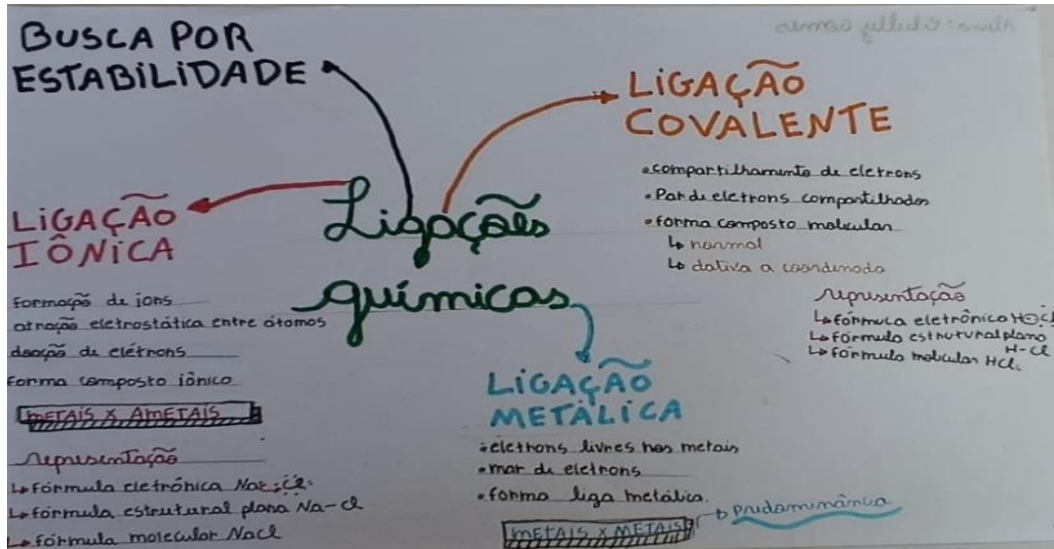 BUSCA POR
ESTABILIDADE
LIGAÇÃO
COVALENTE
• compartilhamento de eletrons
• Par de eletrons compartilhados
• forma composto molecular
↳ normal
↳ dativa a coordenada
representação
↳ fórmula eletrônica
↳ fórmula estrutural plana
H-Cl
↳ fórmula molecular HCl
Ligações
químicas
LIGAÇÃO
IÔNICA
formação de ions
atração eletrostática entre átomos
doação de elétrons
forma composto iônico
METAIS X AMETAIS
representação
↳ fórmula eletrônica
↳ fórmula estrutural plana Na-Cl
↳ fórmula molecular NaCl
LIGAÇÃO
METÁLICA
• eletrons livres nos metais
• mar de eletrons
• forma liga metálica.
METAIS X METAIS
predominância